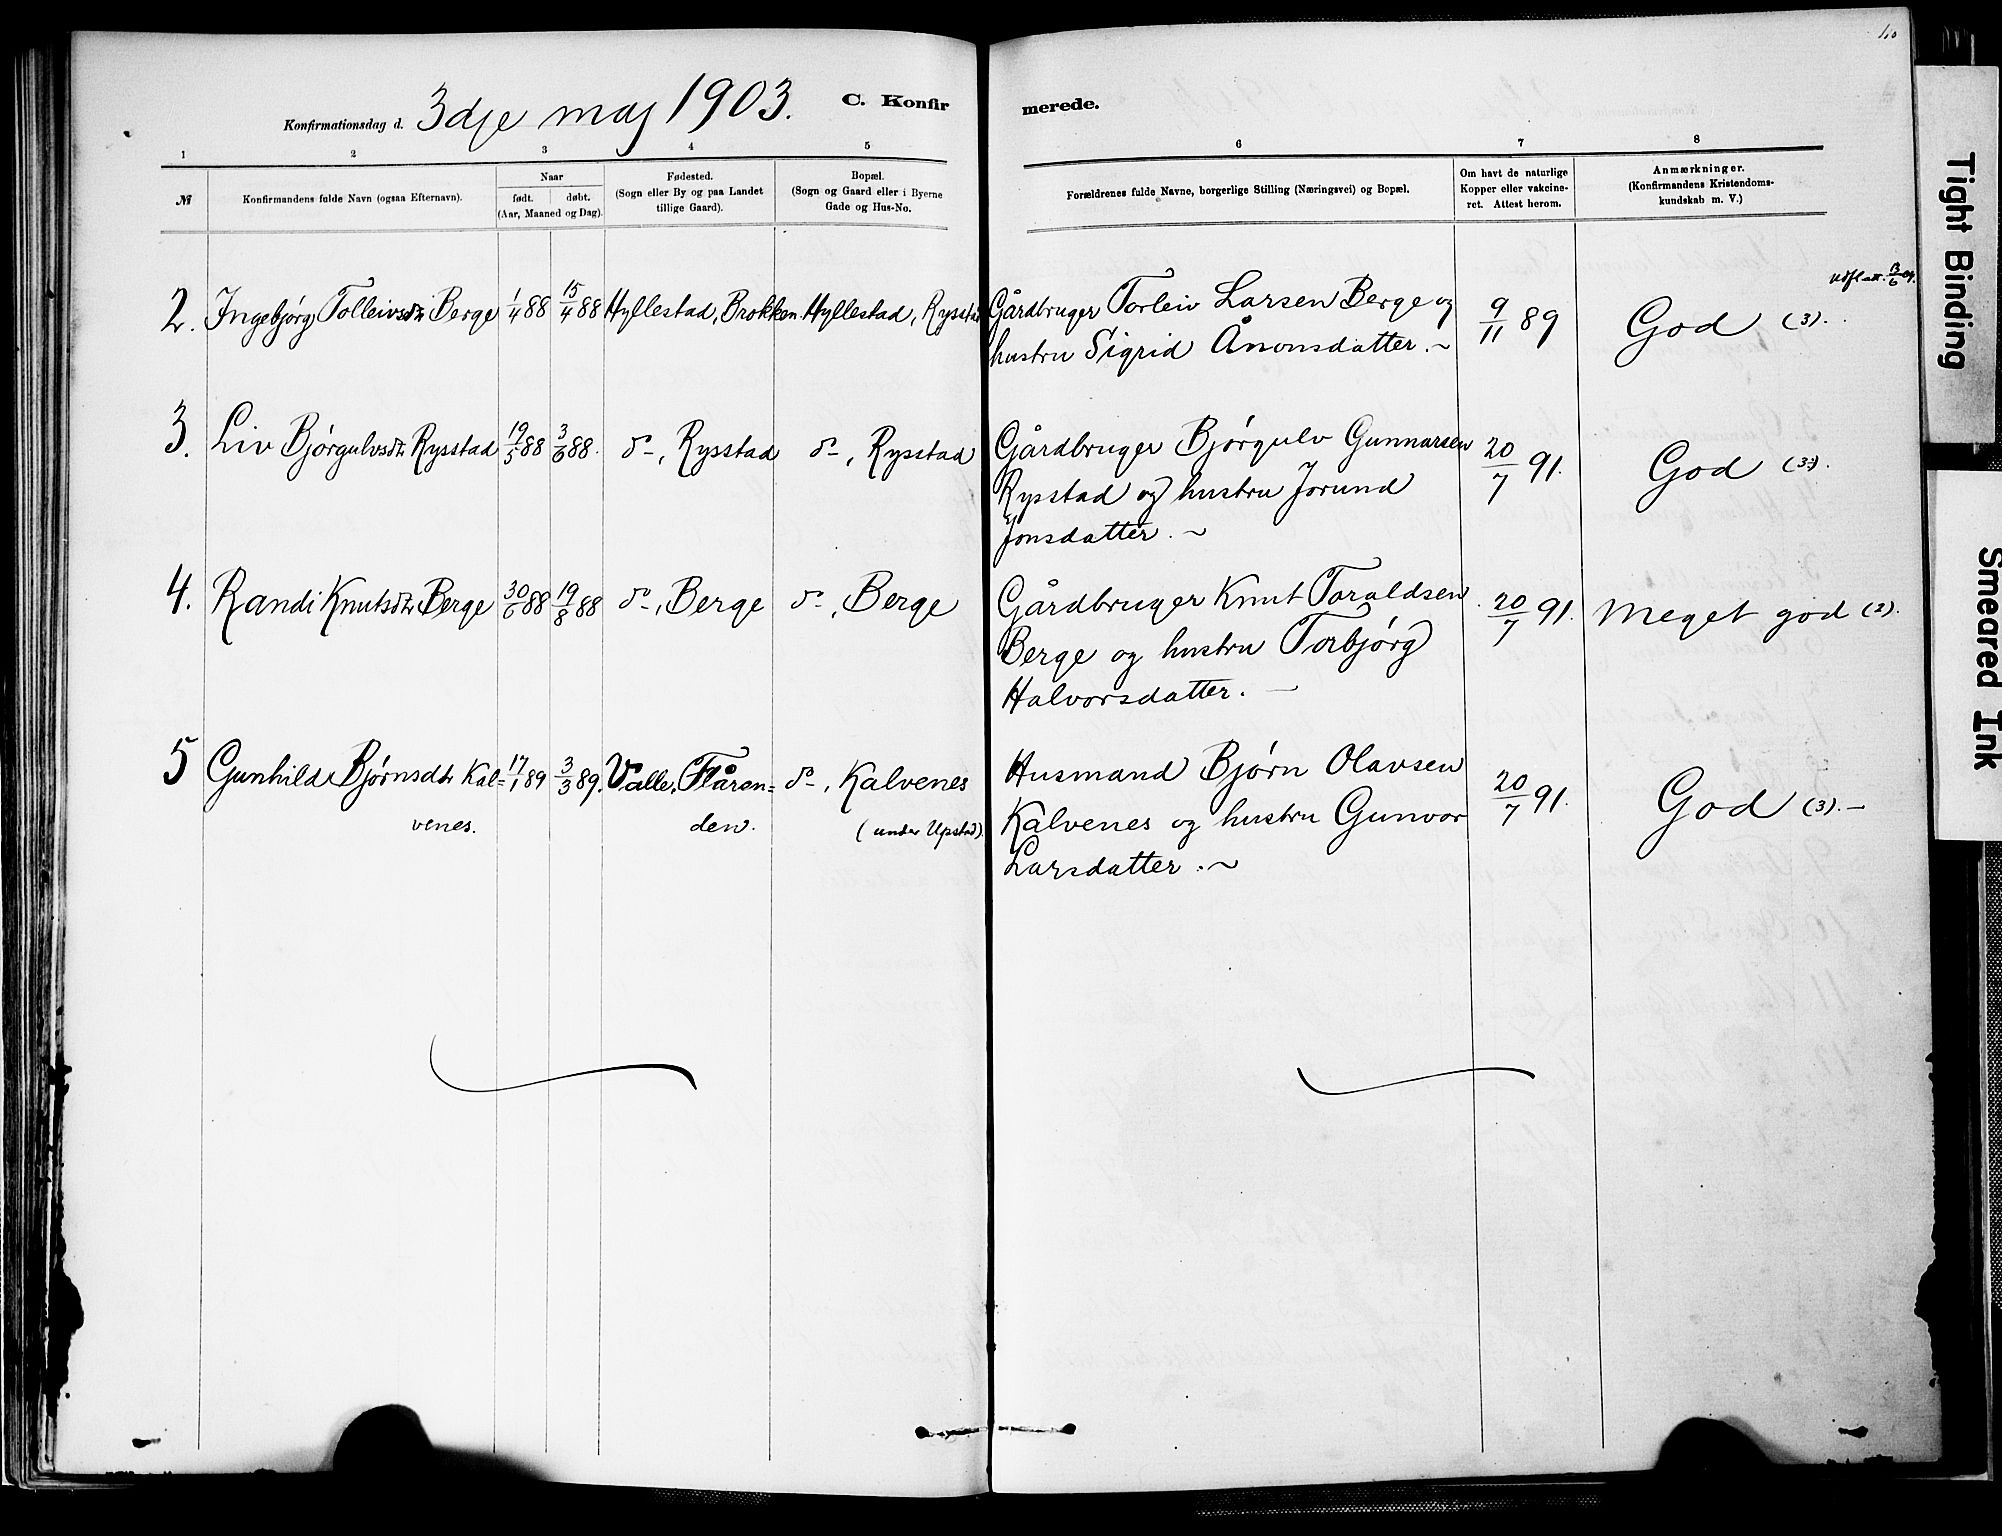 C. Konfir merede.
Konfirmationsdag d. 3dje maj 1903.
1 2 3 4 5 6 7 8
№ Konfirmandens fulde Navn (ogsaa Efternavn).
Naar
født. døbt.
(Aar, Maaned og Dag).
Fødested.
(Sogn eller By og paa Landet
tillige Gaard).
Bopæl.
(Sogn og Gaard eller i Byerne
Gade og Hus-No.
Forældrenes fulde Navne, borgerlige Stilling (Næringsvei) og Bopæl.
Om havt de naturlige
Kopper eller vakcine-
ret. Attest herom.
Anmærkninger.
(Konfirmandens Kristendoms-
kundskab m. V.)
2. Ingebjørg Tolleivsdtr Berge 1/4 88 15/4 88 Hyllestad, Brokken Hyllestad, Rysstad Gårdbruger Torleiv Larsen Berge og 9/11 89 God (3).
hustru Sigrid Ånonsdatter. ~
3. Liv Bjørgulvsdtr Rysstad 19/5 88 3/6 88. do, Rysstad do, Rysstad Gårdbruger Bjørgulv Gunnarsen 20/7 91. God (3).
Rysstad og hustru Jorund
Jonsdatter. ~
4. Randi Knutsdtr Berge 30/6 88 19/8 88 do, Berge do, Berge Gårdbruger Knut Taraldsen 20/7 91. Meget god (2).
Berge og hustru Torbjørg
Halvorsdatter. —
5 Gunhild Bjørnsdtr Kal= 17/1 89 3/3 89. Valle, Flåren= do, Kalvenes Husmand Bjørn Olavsen 20/7 91. God (3). —
venes. den. (under Upstad). Kalvenes og hustru Gunvor
Larsdatter. ~
Tight Binding
Smeared Ink